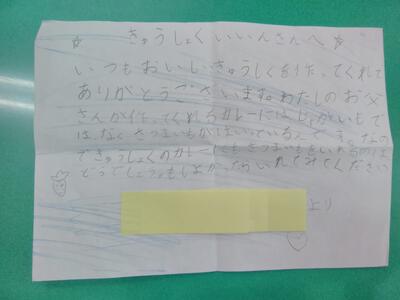 ☆ きゅうしょくいいんさんへ ☆
いつもおいしいきゅうしくを作ってくれて
ありがとうございます。わたしのお父
さんが作ってくれるカレーにはじゃがいもで
はなくさつまいもがはいっているんです。なの
できゅうしょくのカレーにもさつまいもをいれるのは
どうでしょうもしよかったらいれてみてください
より